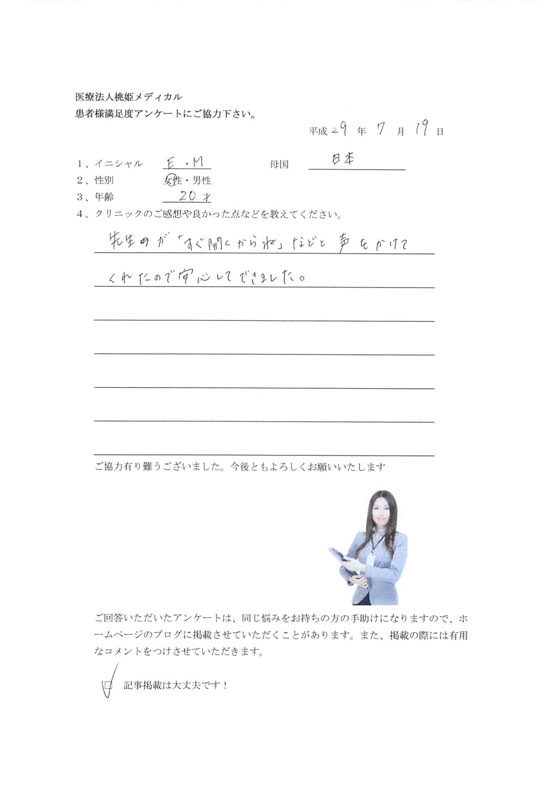 医療法人桃姫メディカル
患者様満足度アンケートにご協力下さい。
平成 29 年 7 月 19 日
1、イニシャル E.M 母国 日本
2、性別 女性・男性
3、年齢 20才
4、クリニックのご感想や良かった点などを教えてください。
先生のが「すぐ聞くからね」などと声をかけて
くれたので安心してできました。
ご協力有り難うございました。今後ともよろしくお願いいたします
ご回答いただいたアンケートは、同じ悩みをお持ちの方の手助けになりますので、ホ
ームページのブログに掲載させていただくことがあります。また、掲載の際には有用
なコメントをつけさせていただきます。
記事掲載は大丈夫です！